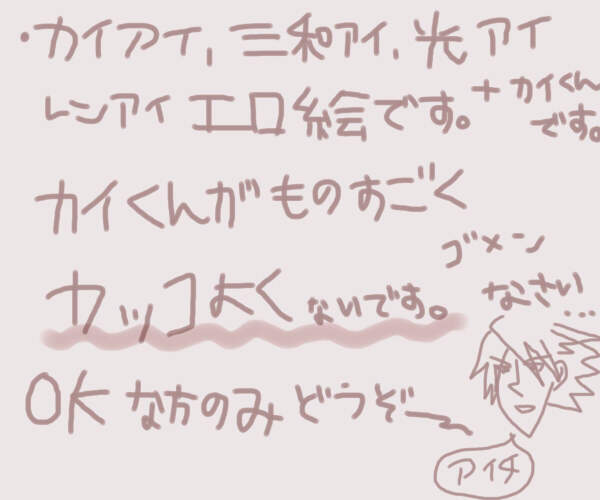 ・カイアイ、三和アイ、光アイ
レンアイ エロ絵です。+カイくんです。
カイくんがものすごく
カッコよくないです。
ゴメンなさい...
OKな方のみどうぞー
アイチ